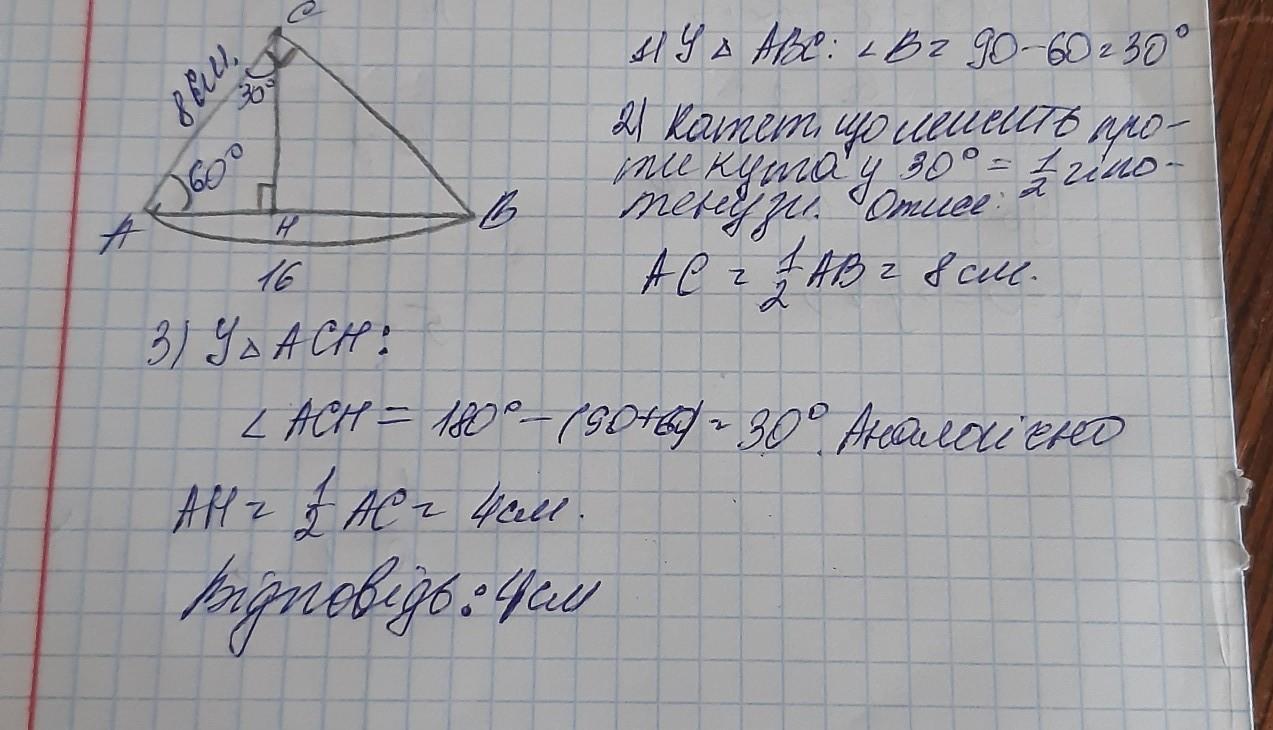 C
8 см.
30°
60°
A
H
B
16
1) У △ ABC: ∠B = 90-60=30°
2) Катет, що лежить про-
ти кута у 30° = 1/2 гіпо-
тенузи. Отже:
AC = 1/2 AB = 8 см.
3) У △ ACH:
∠ ACH = 180° - (90+60) = 30°. Аналогічно
AH = 1/2 AC = 4 см.
Відповідь: 4 см